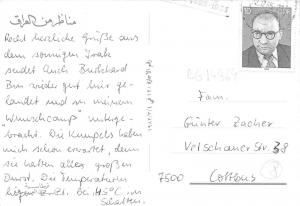 مناظر من العراق
Recht herzliche Grüße aus
dem sonnigen Irak
sendet Euch Burkhard
Bin wieder gut hier ge-
landet und in meinem
"Wunschcamp" unterge-
bracht. Die Kumpels haben
mich schon erwartet, denn
sie hatten alle großen
Durst. Die Temperaturen
liegen z. Zt. bei 45°C im
Schatten.
Fam.
Günter Zacher
Velschauer Str. 38
7500 Cottbus